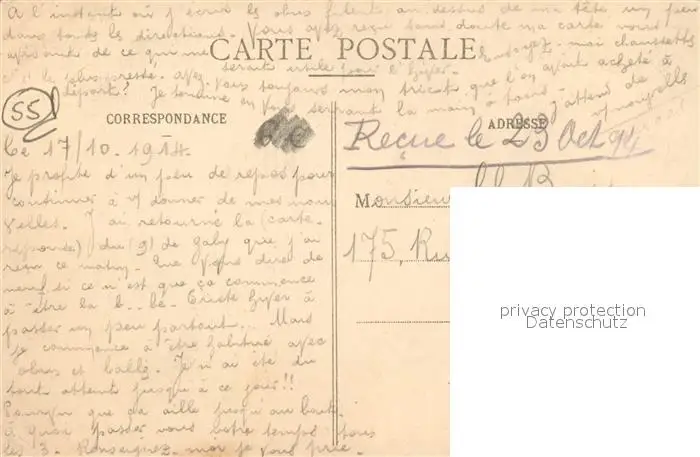 A l'instant où j'écris les obus filent au-dessus de ma tête un peu
dans toutes les directions. Vous avez reçu sans doute ma carte vous
avisant de ce qui me serait utile pour l'hyver. Envoyez-moi chaussettes
c'est le plus pressé. Avez-vous toujours mon tricot que l'on avait acheté à
départ? Je termine en vous serrant la main à tous. J'attend de
vos nouvelles
CARTE POSTALE
55
CORRESPONDANCE
6 €
ADRESSE
Reçue le 23 Oct 14
Le 17/10. 1914.
Je profite d'un peu de repos pour
continuer à vs donner de mes nou
velles. J'ai retourné la (carte-
réponse) du (9) de Gaby que j'ai
reçu ce matin. Que vous dire de
neuf si ce n'est que ça commence
à être la b..be. Triste hyver à
passer un peu partout... Mais
je commence à être habitué avec
obus et balles. Je n'ai été du
tout atteint jusqu'à ce jour!!
Pourvu que ça aille jusqu'au bout.
À quoi passez vous votre temps tous
les 3. Renseignez-moi je vous prie.
Monsieur
175, Rue
privacy protection
Datenschutz